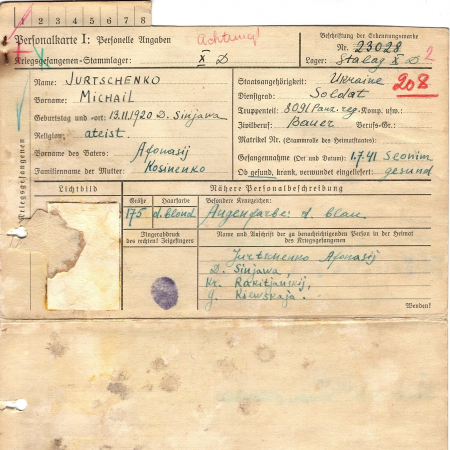 1 2 3 4 5 6 7 8
Personalkarte I: Personelle Angaben
Achtung!
Beschriftung der Erkennungsmarke
Nr. 23028
Kriegsgefangenen-Stammlager: X D
Lager: Stalag X D 2
Name: JURTSCHENKO
Vorname: MICHAIL
Geburtstag und -ort: 13.11.1920 D. Sinjawa
Religion: ateist.
Vorname des Vaters: Afonasij
Familienname der Mutter: Kosinenko
Staatsangehörigkeit: Ukraine
208
Dienstgrad: Soldat
Truppenteil: 8091 Panz. reg. Komp. usw.:
Zivilberuf: Bauer Berufs-Gr.:
Matrikel Nr. (Stammrolle des Heimatstaates):
Gefangennahme (Ort und Datum): 1.7.41 Slonim
Ob gesund, krank, verwundet eingeliefert: gesund
Kriegsgefangenen
Lichtbild
Nähere Personalbeschreibung
Größe
Haarfarbe
Besondere Kennzeichen:
175
d. blond
Augenfarbe: d. blau
Fingerabdruck
des rechten! Zeigefingers
Name und Anschrift der zu benachrichtigenden Person in der Heimat
des Kriegsgefangenen
Jurtschenko Afonasij
D. Sinjawa,
Kr. Rakitjanskij,
G. Kiewskaja.
Wenden!